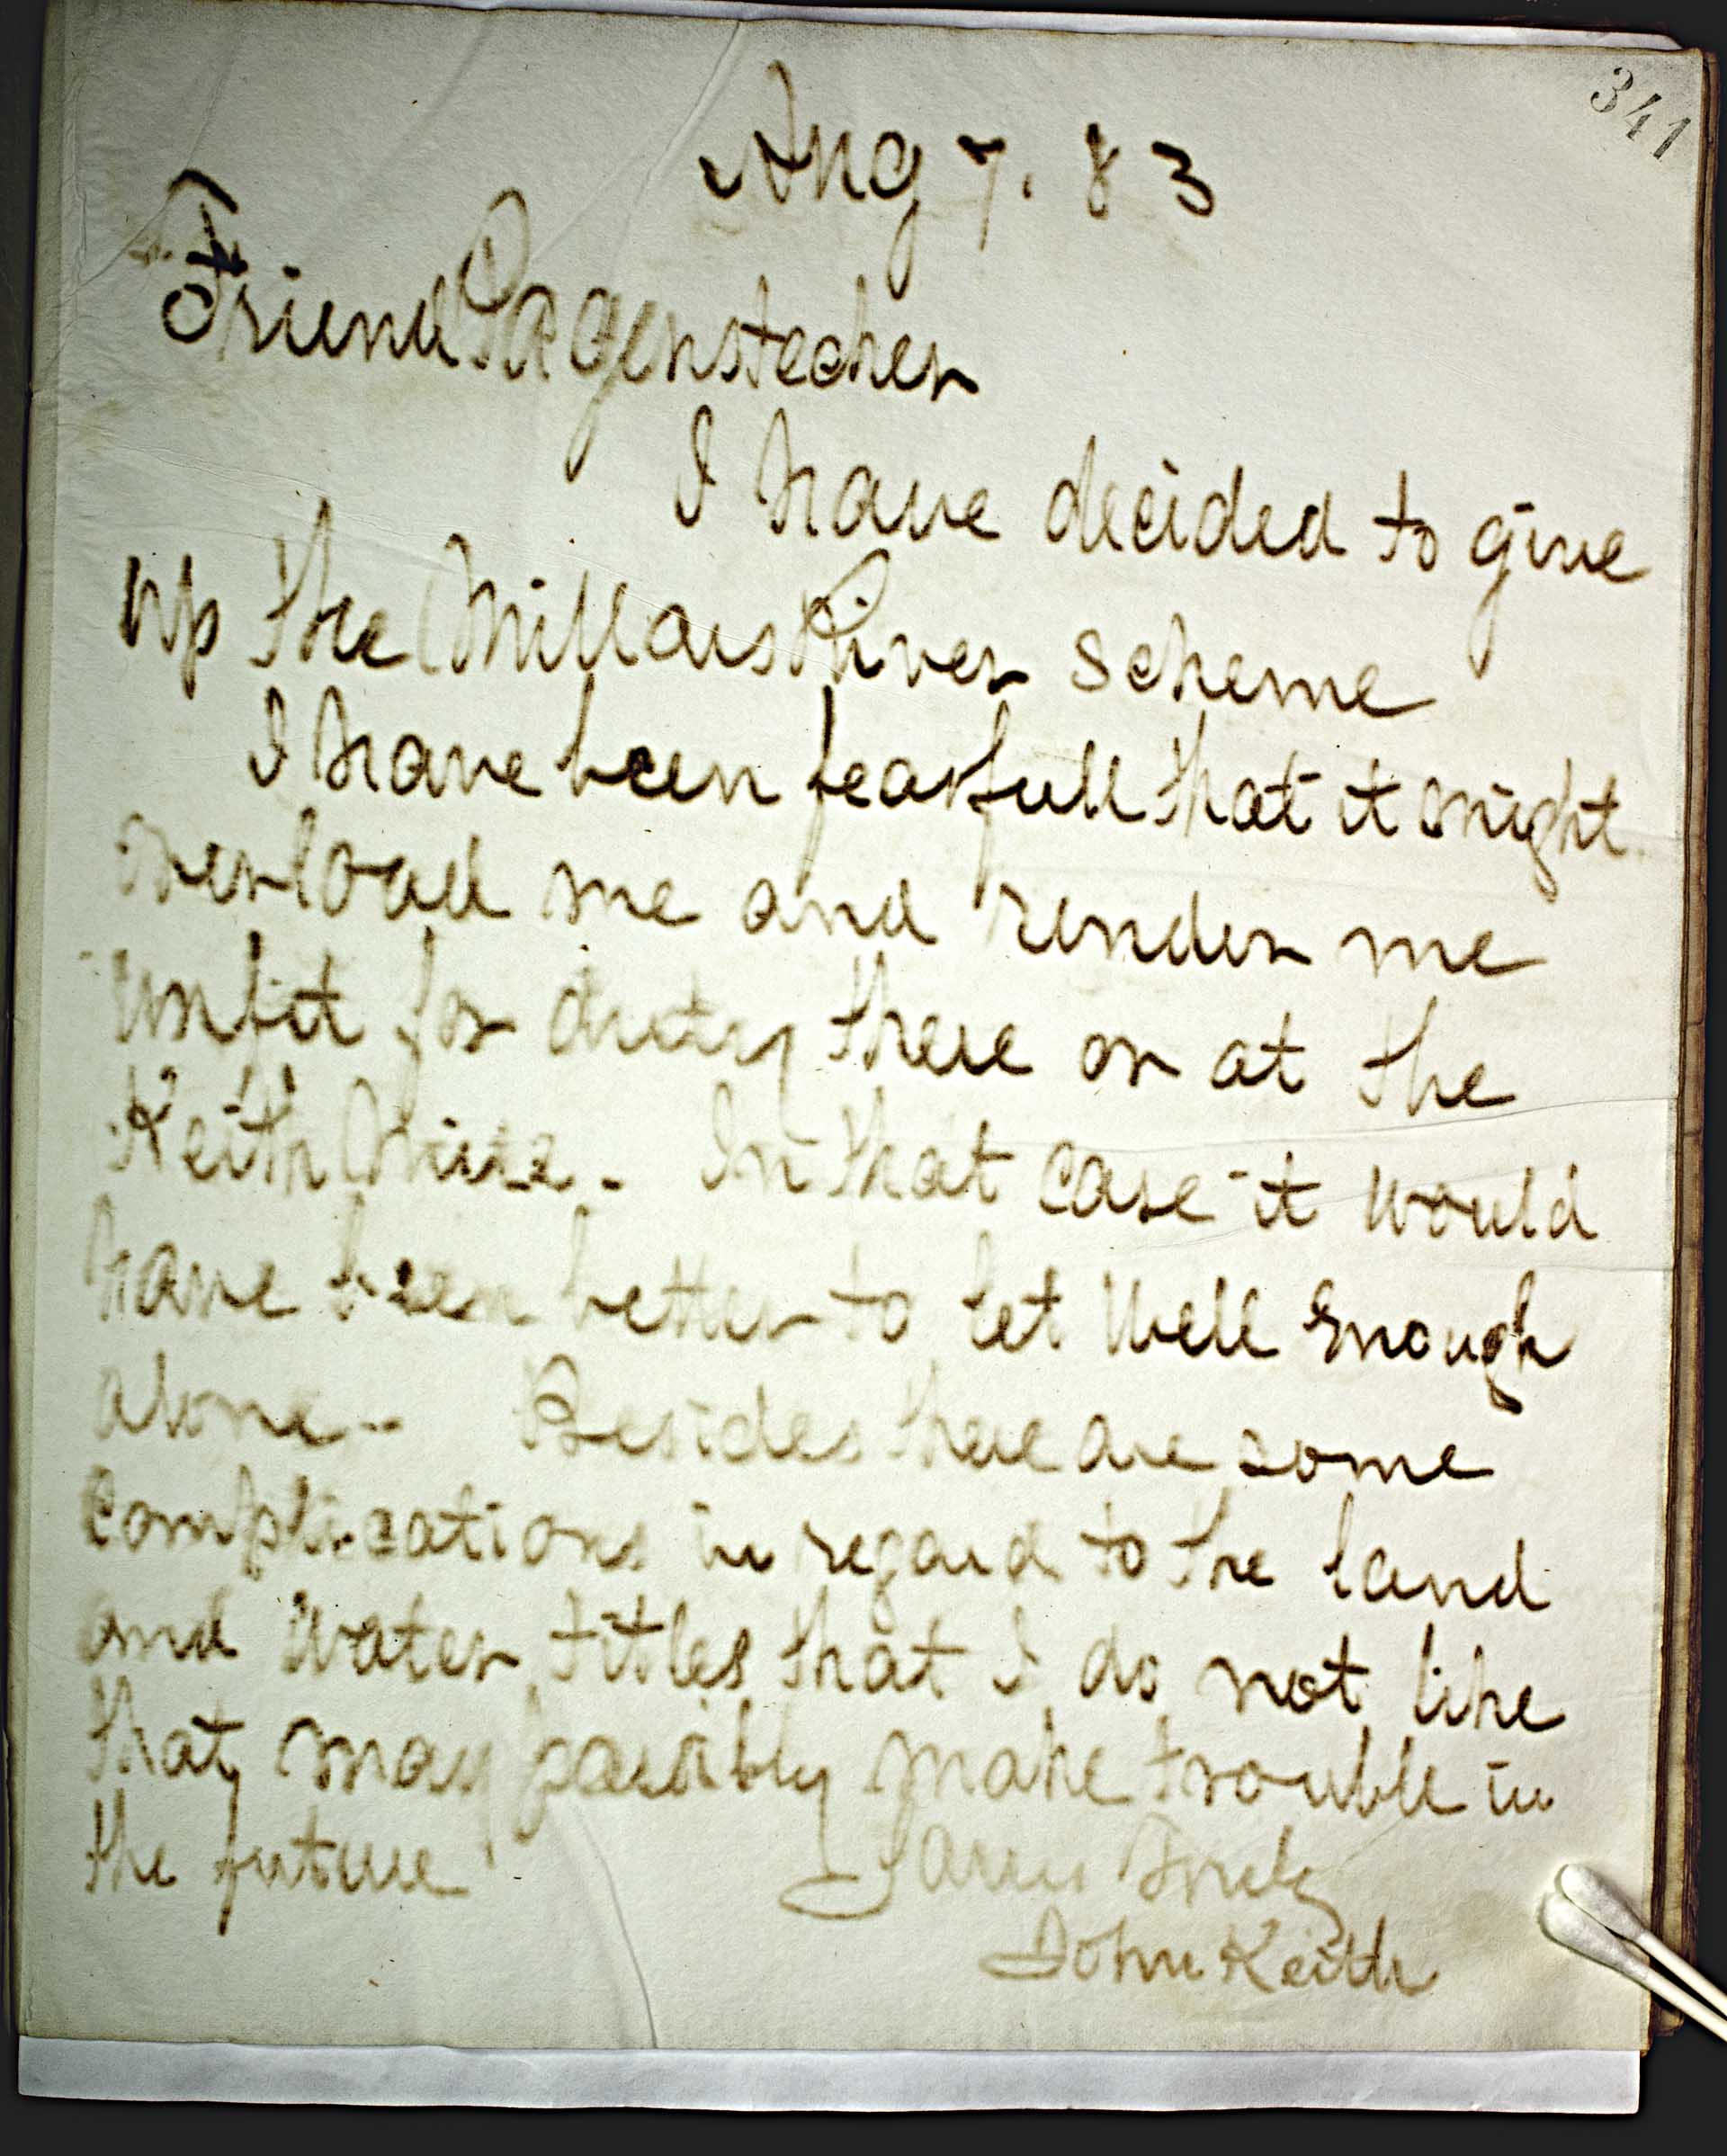 341
Aug 7. 83
Friend Pagenstecher
I have decided to give
up the Millars River scheme
I have been fearfull that it might
overload me and render me
unfit for duty there or at the
Keith Mills. In that case it would
have been better to let well enough
alone - Besides there are some
complications in regard to the land
and water titles that I do not like
that may possibly make trouble in
the future
Yours Truly
John Keith